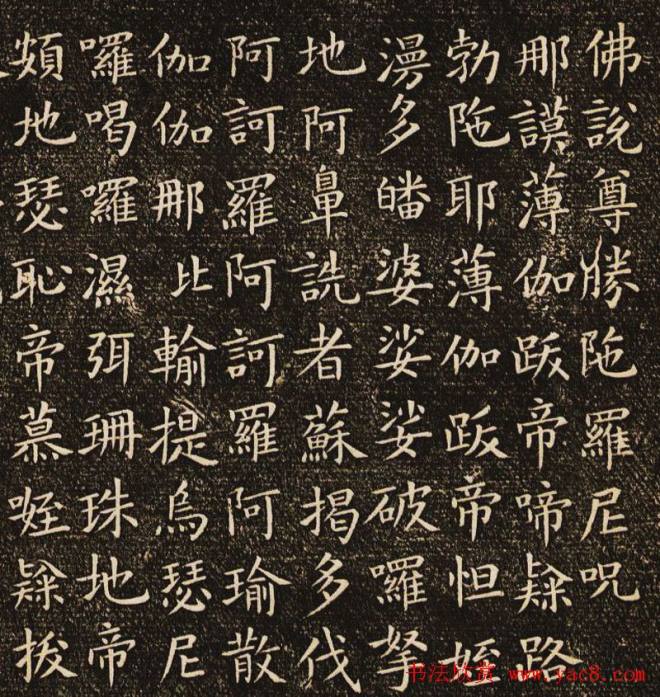 佛說尊勝陁羅尼呪
那謨薄伽跋帝啼隷路
勃陁耶薄伽跋帝怛姪
漫多皤婆娑娑破囉拏
地阿鼻詵者蘇揭多伐
阿訶羅阿訶羅阿瑜散
伽伽那比輸提烏瑟尼
囉喝囉濕弭珊珠地帝
頞地瑟恥帝慕咥隷拔
书法欣赏 www.yac8.com